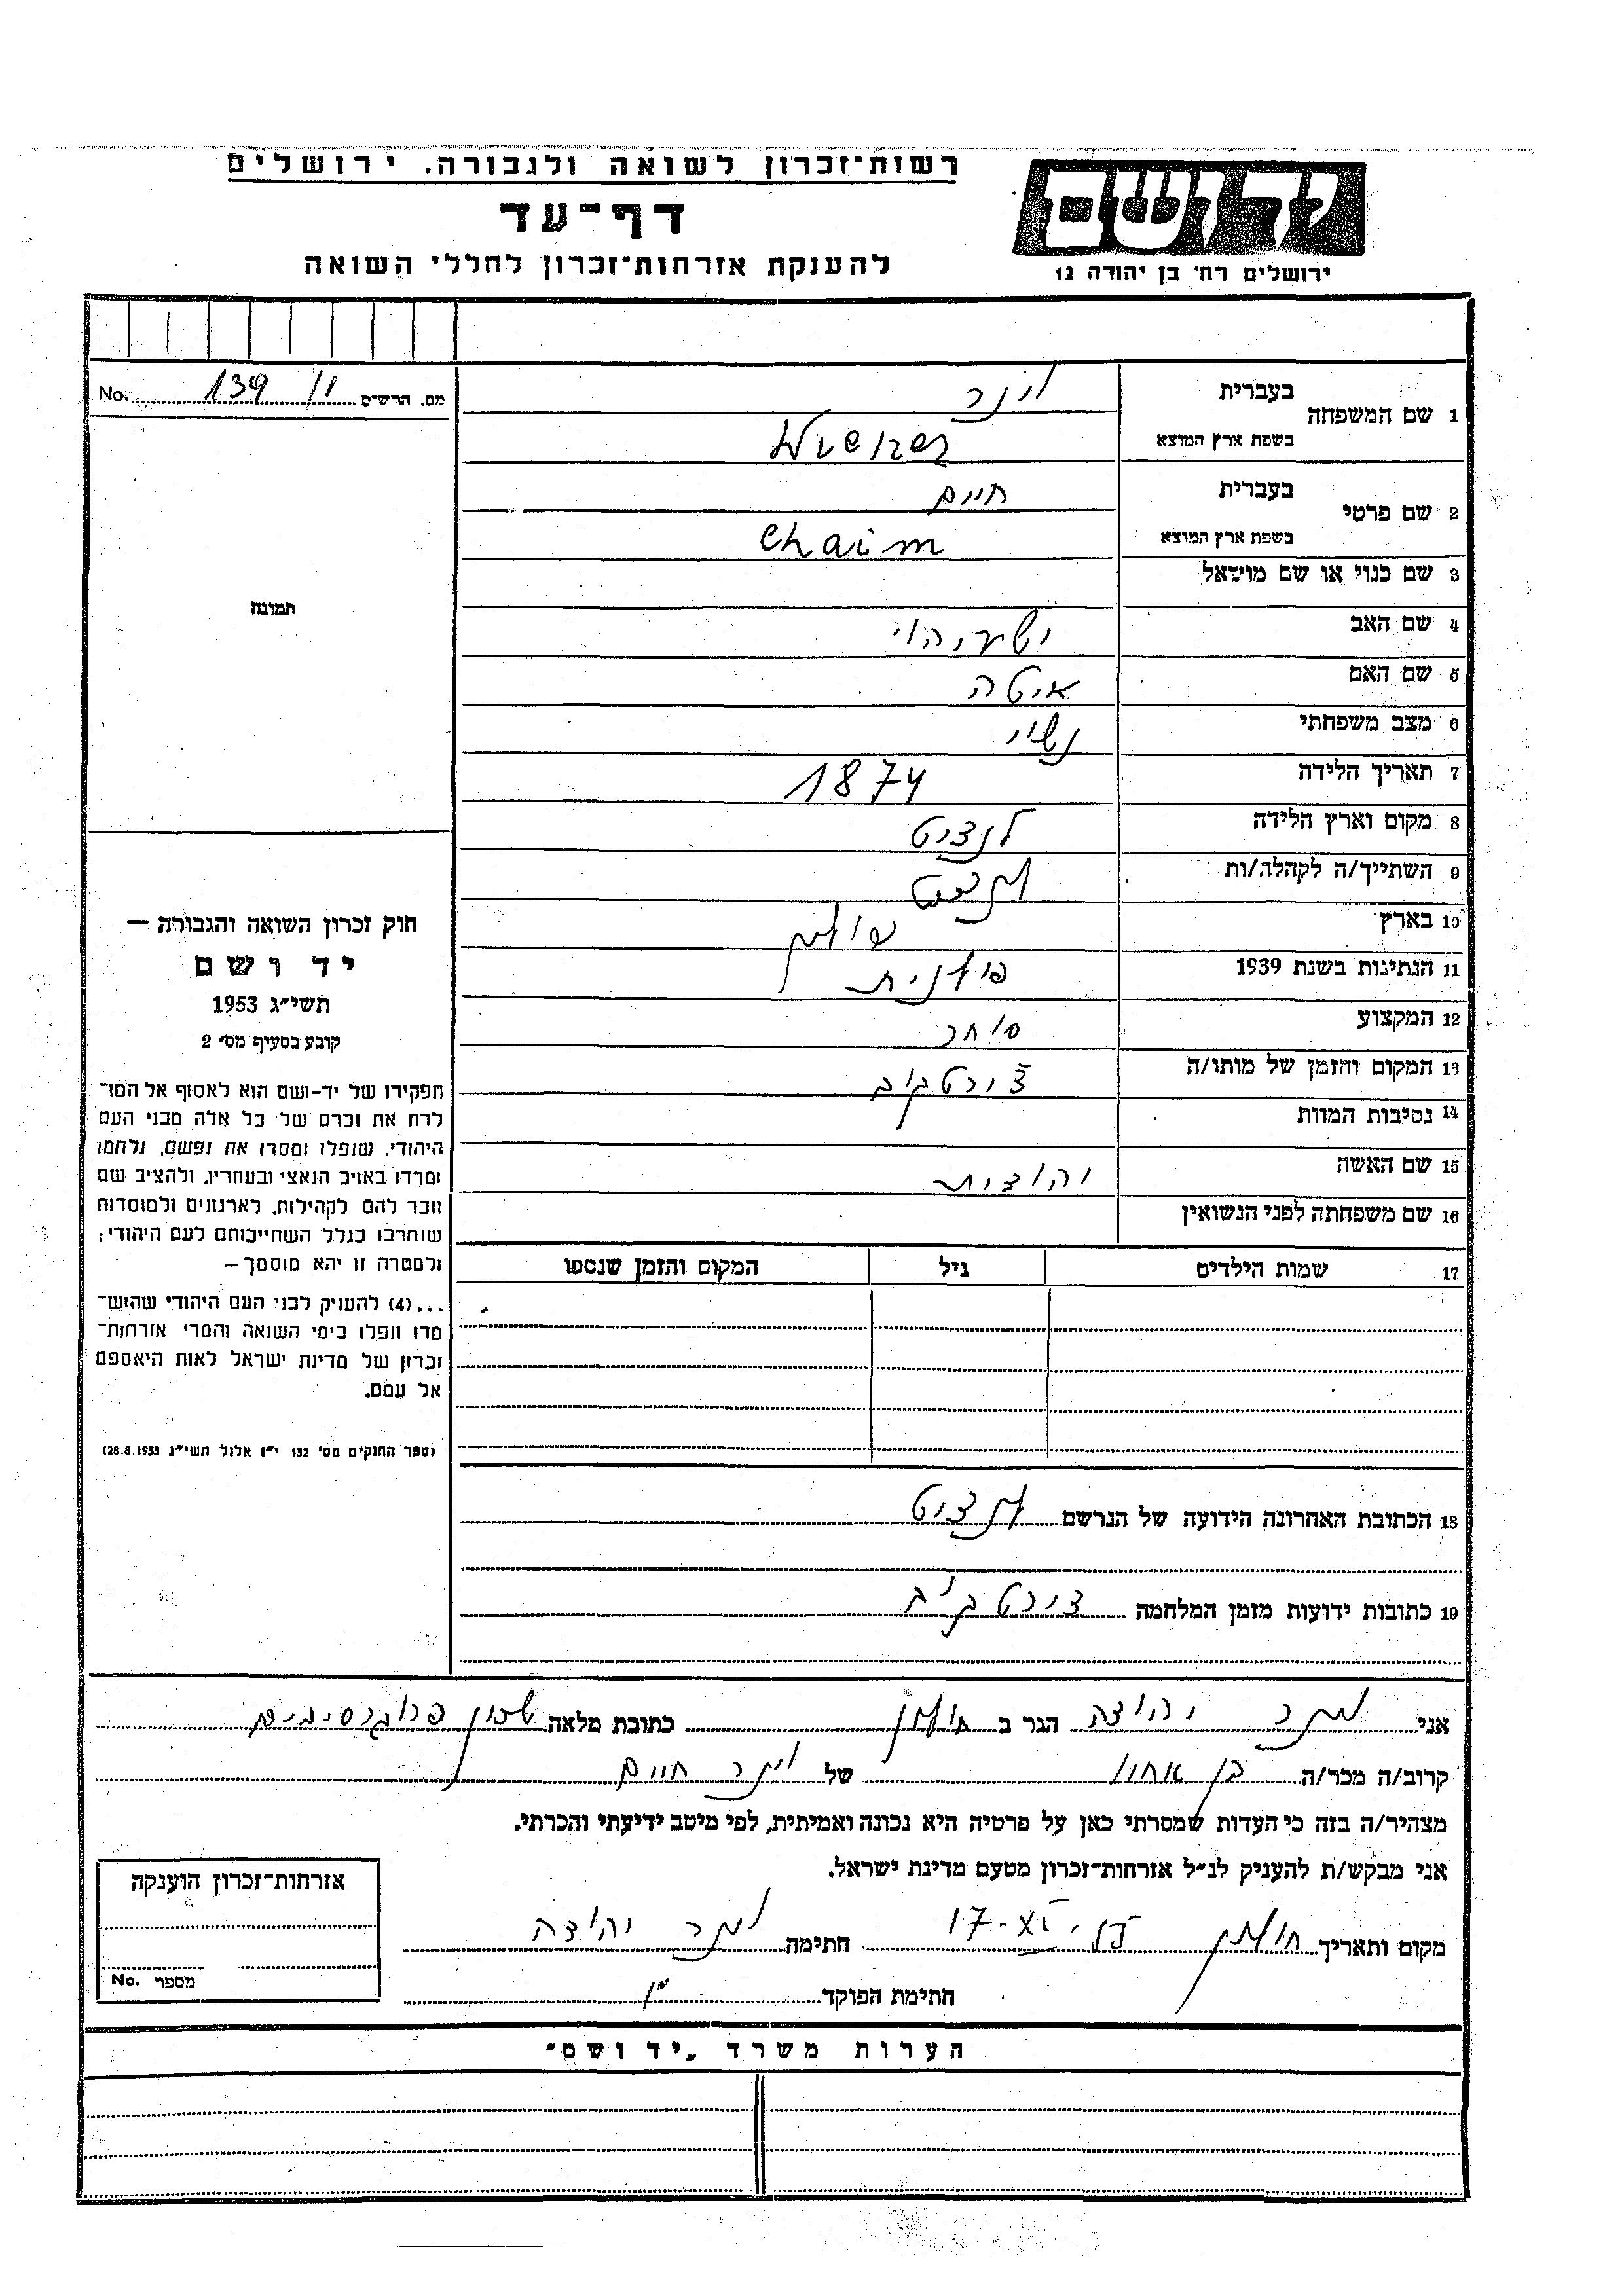 רשות־זכרון לשואה ולגבורה, ירושלים
דף־עד
להענקת אזרחות־זכרון לחללי השואה
יד ושם
ירושלים רח' בן יהודה 12
מס. הרשים 139/1 No.
1 שם המשפחה
בעברית וינר
בשפת ארץ המוצא Wiener
2 שם פרטי
בעברית חיים
בשפת ארץ המוצא Chaim
3 שם כנוי או שם מושאל
4 שם האב ישעיהו
5 שם האם איטה
6 מצב משפחתי נשוי
7 תאריך הלידה 1874
8 מקום וארץ הלידה לנצוט
9 השתייך/ה לקהלה/ות לנצוט
10 בארץ פולין
11 הנתינות בשנת 1939 פולנית
12 המקצוע סוחר
13 המקום והזמן של מותו/ה צ'ורטקוב
14 נסיבות המוות
15 שם האשה יהודית
16 שם משפחתה לפני הנשואין
17 שמות הילדים גיל המקום והזמן שנספו
תמונה
חוק זכרון השואה והגבורה —
יד ושם
תשי"ג 1953
קובע בסעיף מס' 2
תפקידו של יד-ושם הוא לאסוף אל המו־
לדת את זכרם של כל אלה מבני העם
היהודי, שנפלו ומסרו את נפשם, נלחמו
ומרדו באויב הנאצי ובעוזריו, ולהציב שם
וזכר להם לקהילות, לארגונים ולמוסדות
שנחרבו בגלל השתייכותם לעם היהודי;
ולמטרה זו יהא מוסמך —
...(4) להעניק לבני העם היהודי שהוש־
מדו ונפלו בימי השואה והמרי אזרחות־
זכרון של מדינת ישראל לאות היאספם
אל עמם.
(ספר החוקים מס' 132 י"ז אלול תשי"ג 28.8.1953)
18 הכתובת האחרונה הידועה של הנרשם לנצוט
19 כתובות ידועות מזמן המלחמה צ'ורטקוב
אני וינר יהודה הגר ב חולון כתובת מלאה שכון פרוגרסיבים
קרוב/ה מכר/ה בן אחיו של וינר חיים
מצהיר/ה בזה כי העדות שמסרתי כאן על פרטיה היא נכונה ואמיתית, לפי מיטב ידיעתי והכרתי.
אני מבקש/ת להעניק לנ"ל אזרחות־זכרון מטעם מדינת ישראל.
מקום ותאריך חולון 17-XI- חתימה וינר יהודה
חתימת הפוקד
אזרחות־זכרון הוענקה
מספר No.
הערות משרד „יד ושם"